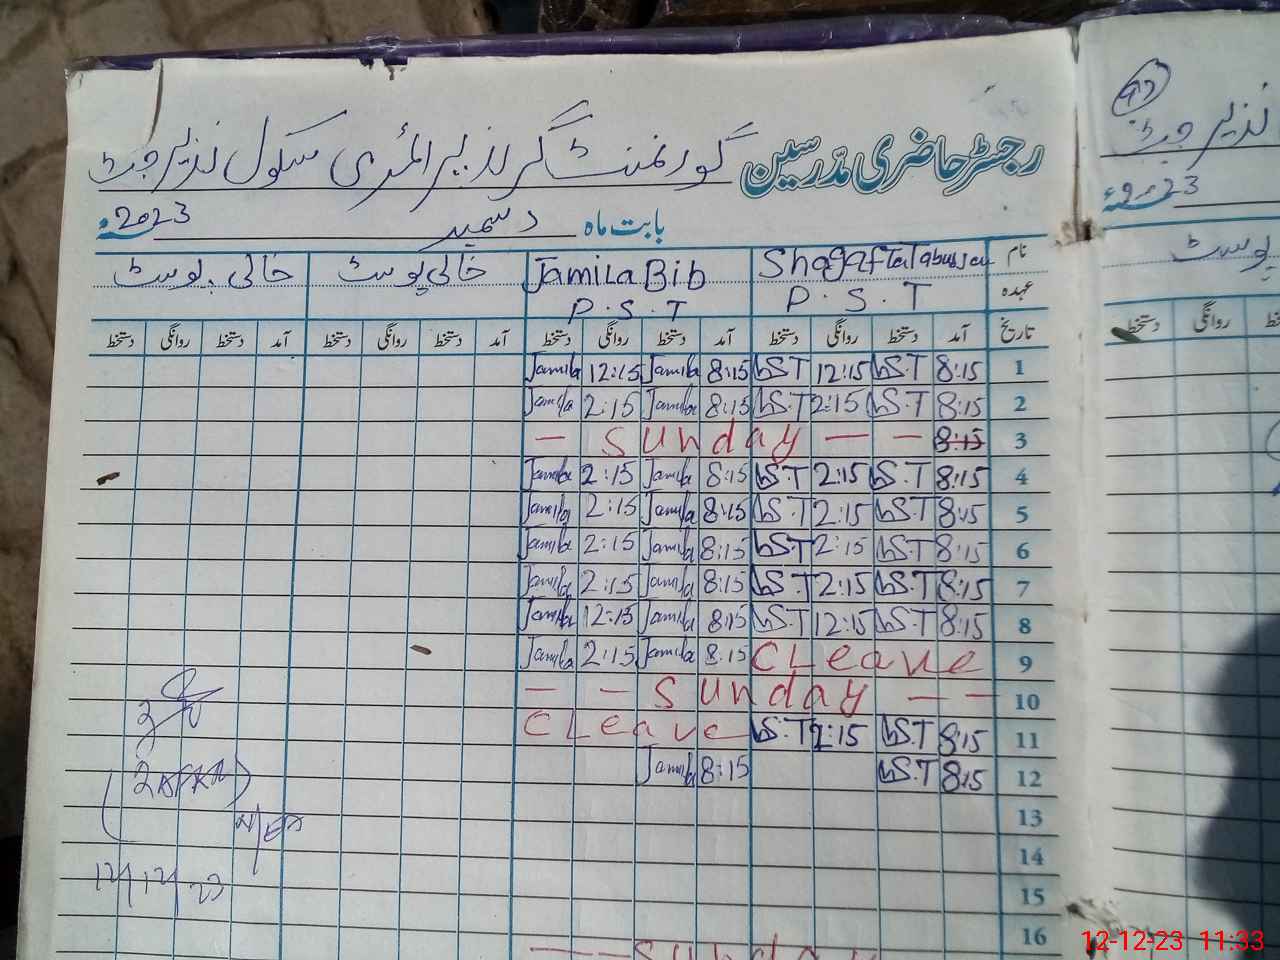 رجسٹر حاضری مدرسین گورنمنٹ گرلز پرائمری سکول نذیر جٹ
بابت ماہ دسمبر 2023ء
نام Shagafta Jamila Bib خالی پوسٹ خالی پوسٹ
عہدہ P.S.T P.S.T
تاریخ آمد دستخط روانگی دستخط آمد دستخط روانگی دستخط آمد دستخط روانگی دستخط آمد دستخط روانگی دستخط
1 8:15 S.T 12:15 S.T 8:15 Jamila 12:15 Jamila
2 8:15 S.T 2:15 S.T 8:15 Jamila 2:15 Jamila
3 8:15 — Sunday — —
4 8:15 S.T 2:15 S.T 8:15 Jamila 2:15 Jamila
5 8:15 S.T 2:15 S.T 8:15 Jamila 2:15 Jamila
6 8:15 S.T 2:15 S.T 8:15 Jamila 2:15 Jamila
7 8:15 S.T 2:15 S.T 8:15 Jamila 2:15 Jamila
8 8:15 S.T 12:15 S.T 8:15 Jamila 12:15 Jamila
9 C Leave 8:15 Jamila 2:15 Jamila
10 — — Sunday — —
11 8:15 S.T 2:15 S.T C Leave
12 8:15 S.T 8:15 Jamila
13
14
15
16
— — Sunday
12/12/23
نذیر جٹ
2023ء
پوسٹ
روانگی دستخط
12-12-23 11:33